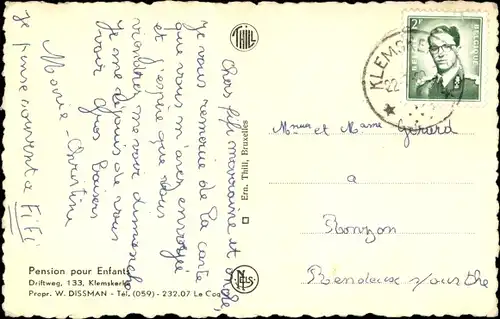 Chers Fifi marraine et oncle,
Je vous remercie de la carte
que vous m'avez envoyée
et j'espère que vous
viendrez me voir dimanche
Je me réjouis de vous
voir Gros Baisers
Marie-Christine
Je pense souvent à FiFi
THILL
Ern. Thill, Bruxelles
NELS
Pension pour Enfants
Driftweg, 133, Klemskerke
Propr. W. DISSMAN - Tél. (059) - 232.07 Le Coq
2F
BELGIQUE
KLEMSKE
22
Mr et Mme Gérard
a
Ronzon
Rendeux s/ourthe